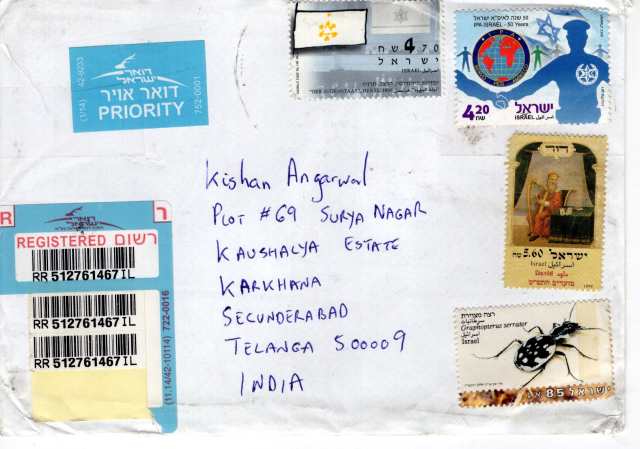 דואר
ישראל
דואר אויר
PRIORITY
(1/14) 42-9033
752-0001
4.70
ישראל
ISRAEL
50 שנה לאיפ"א ישראל
IPA-ISRAEL - 50 Years
IPA
4.20
ישראל
ISRAEL
דוד
5.60
ישראל
Israel
David
מועדים תש"ס
Graphopterus serrator
Israel
ישראל 85
R
ר
רשום REGISTERED
RR 512761467 IL
RR 512761467 IL
RR 512761467 IL
(11.14/42-10114) 722-0016
Kishan Angarwal
PLOT #69 SURYA NAGAR
KAUSHALYA ESTATE
KARKHANA
SECUNDERABAD
TELANGA 500009
INDIA